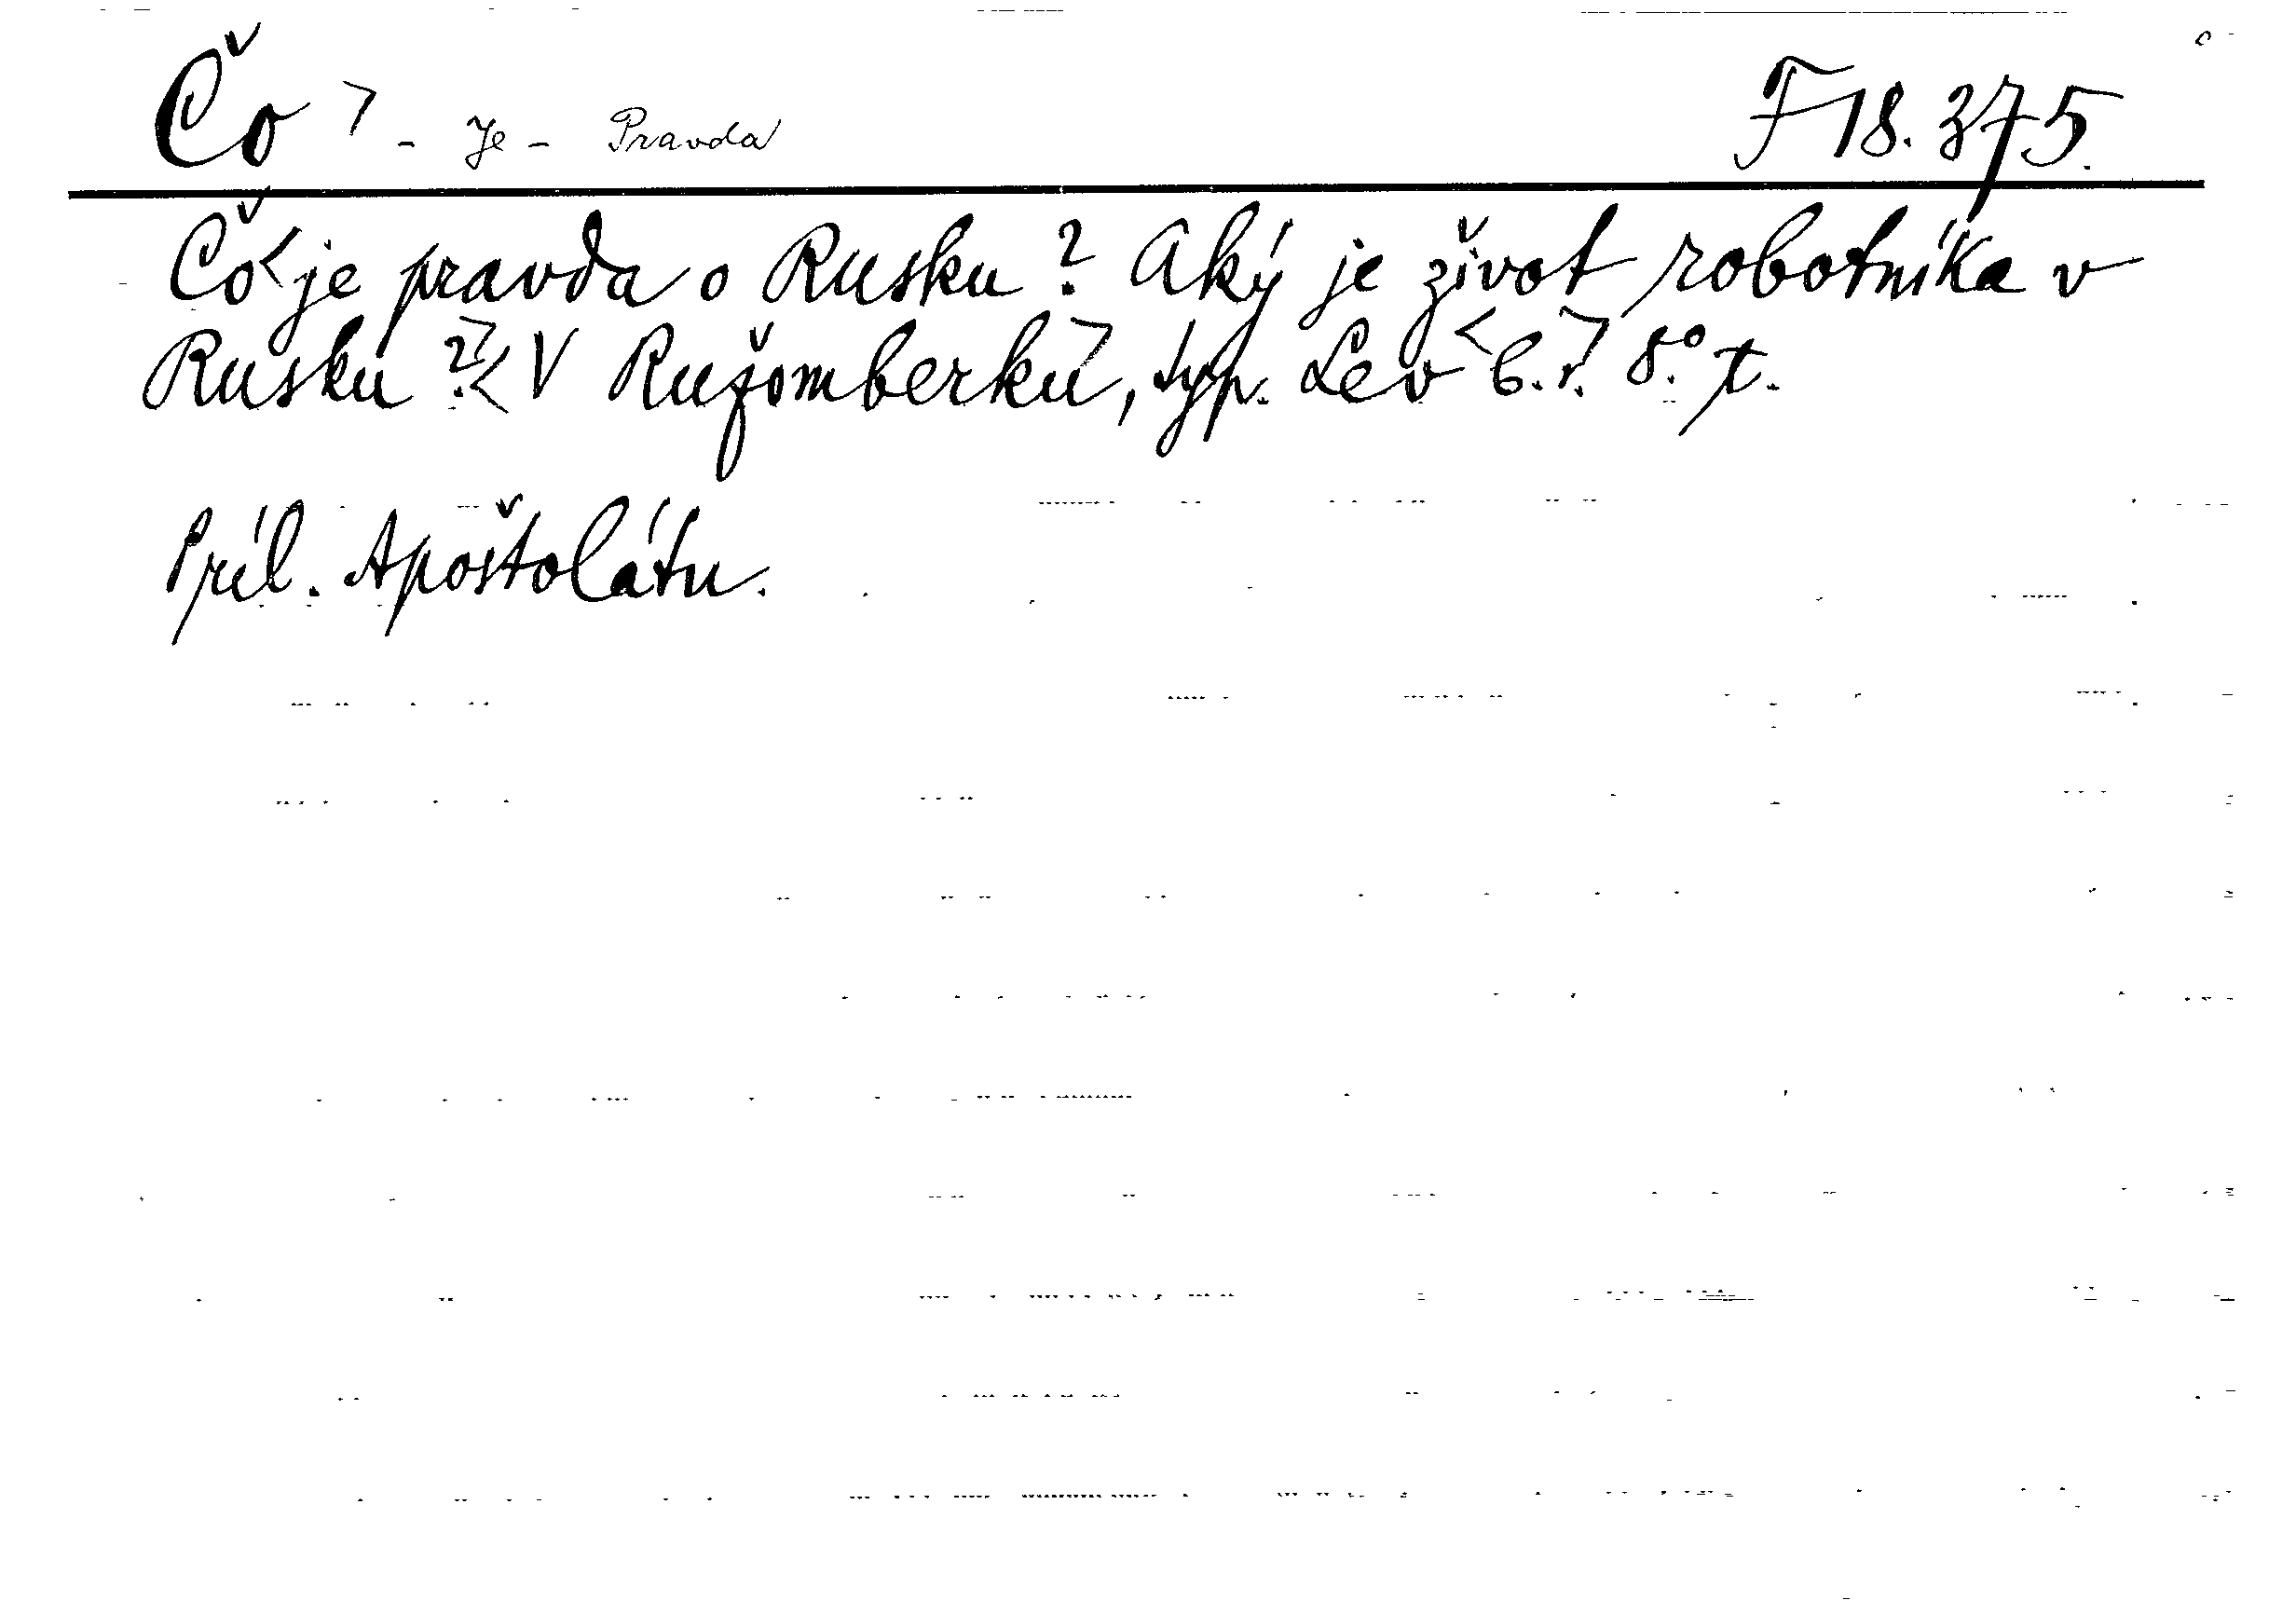 Čo > - Je - Pravda F 18.375.
Čo < je pravda o Rusku? Aký je život robotníka v
Rusku?>< V Ružomberku>, typ. Lev < b.r.> 8.° t.
Príl. Apoštolátu.